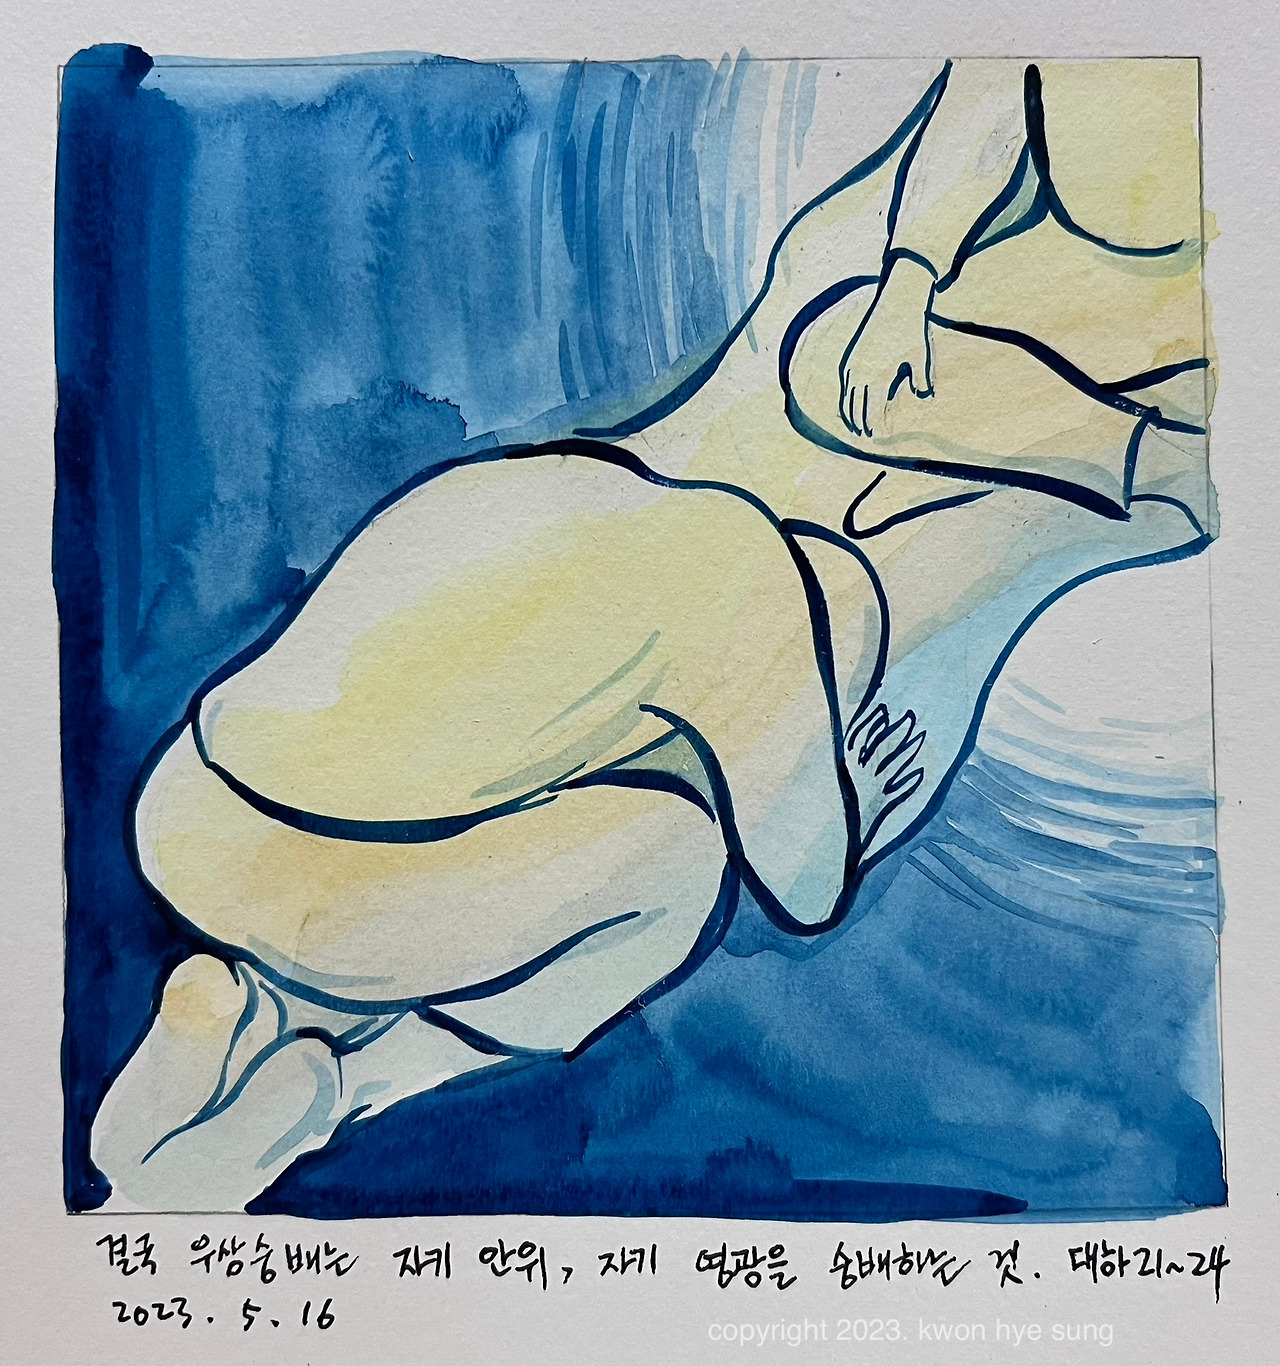 결국 우상숭배는 자기 안위, 자기 영광을 숭배하는 것. 대하21~24
2023. 5. 16
copyright 2023. kwon hye sung